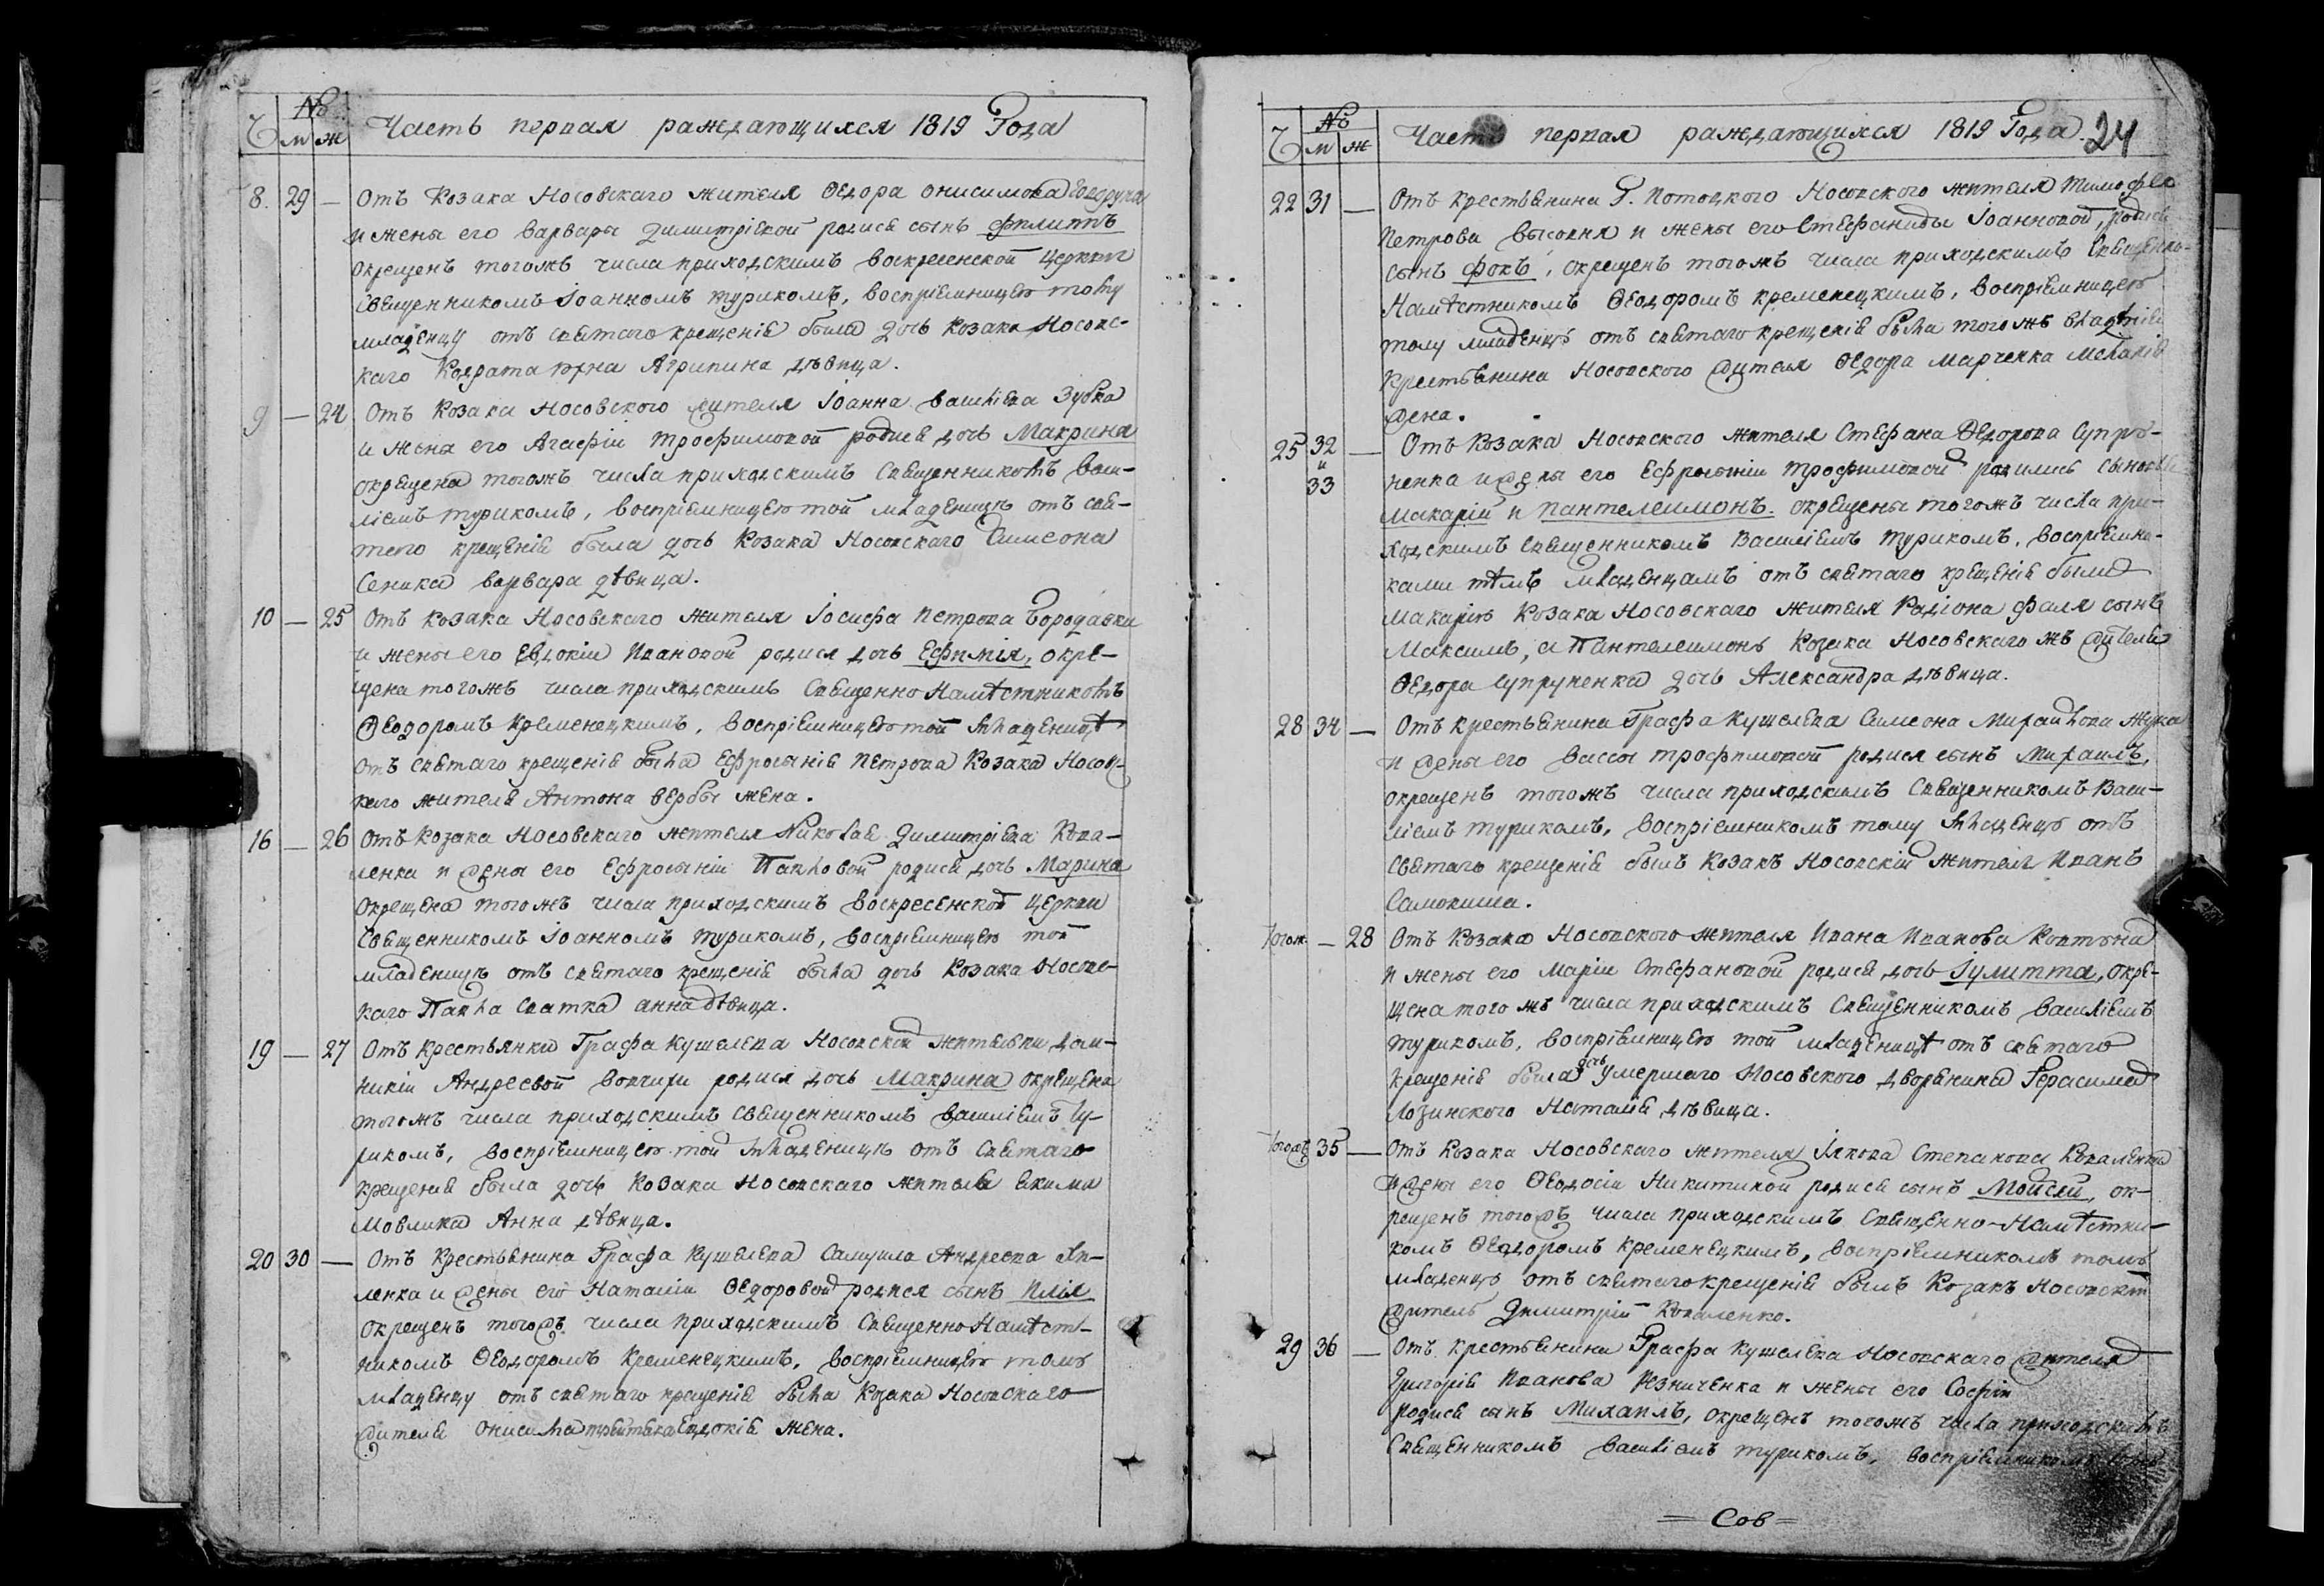 №
Ч м ж Часть первая раждающихся 1819 Года
8. 29 — Отъ Козака Носовскаго жителя Ѳедора Онисимова
и жены его Варвары Димитріевой родися сынъ Филиппъ
окрещенъ тогожъ числа приходскимъ Воскресенской Церкви
Священникомъ Іоанномъ Турикомъ, воспріемницею тому
младенцу отъ святаго крещенія была дочь Козака Носовс-
каго Кодрата Агрипина дѣвица.
9 — 24 Отъ Козака Носовского жителя Іоанна Василіева Зубка
и жены его Агафіи Трофимовой родися дочь Макрина
окрещена тогожъ числа приходскимъ Священникомъ Васи-
ліемъ Турикомъ, воспріемницею той младеницѣ отъ свя-
таго крещенія была дочь Козака Носовскаго Симеона
Сеника Варвара дѣвица.
10 — 25 Отъ Козака Носовского жителя Іосифа Петрова Бородавки
и жены его Евдокіи Ивановой родися дочь Ефимія, окре-
щена тогожъ числа приходскимъ Священно Намѣстникомъ
Ѳеодоромъ Кременецкимъ, воспріемницею той младеницѣ
отъ святаго крещенія была Ефросинія Петрова Козака Носов-
каго жителя Антона Вербы жена.
16 — 26 Отъ Козака Носовскаго жителя Николая Димитріева Кова-
ленка и жены его Ефросиніи Павловой родися дочь Марина
окрещена тогожъ числа приходскимъ Воскресенской Церкви
Священникомъ Іоанномъ Турикомъ, воспріемницею той
младеницѣ отъ святаго крещенія была дочь Козака Носовс-
каго Павла Сватка Анна дѣвица.
19 — 27 Отъ крестьянки Графа Кушелева Носовской жительки Дом-
никіи Андреевой родися дочь Макрина окрещена
тогожъ числа приходскимъ Священникомъ Василіемъ Ту-
рикомъ, воспріемницею той младеницѣ отъ Святаго
крещенія была дочь Козака Носовскаго жителя Якима
Мовлика Анна дѣвица.
20 30 — Отъ Крестьянина Графа Кушелева Самуила Андреева
ленка и жены его Наталіи Ѳедоровой родися сынъ Илія
окрещенъ тогожъ числа приходскимъ Священно Намѣст-
никомъ Ѳеодоромъ Кременецкимъ, воспріемницею тому
младенцу отъ святаго крещенія была Козака Носовскаго
жителя Онисима Евдокія жена.
№
Ч м ж Часть первая раждающихся 1819 Года. 24
22 31 — Отъ Крестьянина Г. Потоцкого Носовского жителя Тимофея
Петрова Высоця и жены его Стефаниды Іоанновой, родися
сынъ Фокъ, окрещенъ тогожъ числа приходскимъ Священно-
Намѣстникомъ Ѳеодоромъ Кременецкимъ, воспріемницею
тому младенцу отъ святаго крещенія была того жъ владѣнія
крестьянина Носовского жителя Ѳедора Марченка Меланія
жена.
25 32 и 33 — Отъ Козака Носовского жителя Стефана Ѳедорова Супру-
ненка и жены его Ефросиніи Трофимовой родились сыновья
Макарій и Пантелеимонъ. окрещены тогожъ числа при-
ходскимъ Священникомъ Василіемъ Турикомъ, воспріемни-
ками тѣмъ младенцамъ отъ святаго крещенія были
Макарію Козака Носовскаго жителя Радіона Фаля сынъ
Максимъ, а Пантелеимонъ Козака Носовскаго жъ жителя
Ѳедора Супруненка дочь Александра дѣвица.
28 34 — Отъ крестьянина Графа Кушелева Симеона Михайлова Жука
и жены его Вассы Трофимовой родися сынъ Михаилъ,
окрещенъ тогожъ числа приходскимъ Священникомъ Васи-
ліемъ Турикомъ, воспріемникомъ тому младенцу отъ
святаго крещенія былъ Козакъ Носовскій житель Иванъ
Самокиша.
тогож. — 28 Отъ Козака Носовского жителя Ивана Иванова Ковтуна
и жены его Маріи Стефановой родися дочь Іулитта, окре-
щена того жъ числа приходскимъ Священникомъ Василіемъ
Турикомъ, воспріемницею той младеницѣ отъ святаго
крещенія была дочь умершаго Носовского дворянина Герасима
Лозинского Наталія дѣвица.
тогожъ 35 — Отъ Козака Носовскаго жителя Якова Степанова Коваленка
и жены его Ѳеодосіи Никитиной родися сынъ Моисей, ок-
рещенъ тогожъ числа приходскимъ Священно-Намѣстни-
комъ Ѳеодоромъ Кременецкимъ, воспріемникомъ тому
младенцу отъ святаго крещенія былъ Козакъ Носовскій
житель Димитрій Коваленко.
29 36 — Отъ крестьянина Графа Кушелева Носовскаго жителя
Григорія Иванова Резниченка и жены его Софіи
родися сынъ Михаилъ, окрещенъ тогожъ числа приходскимъ
Священникомъ Василіемъ Турикомъ, воспріемникомъ
= Сов =